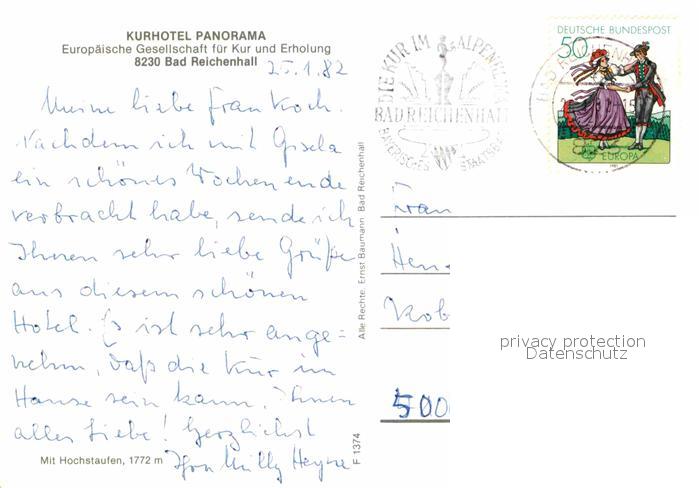 KURHOTEL PANORAMA
Europäische Gesellschaft für Kur und Erholung
8230 Bad Reichenhall
25.1.82
Meine liebe Frau Koch.
Nachdem ich mit Gisela
ein schönes Wochenende
verbracht habe, sende ich
Ihnen sehr liebe Grüße
aus diesem schönen
Hotel. Es ist sehr ange=
nehm, daß die Kur im
Hause sein kann. Ihnen
alles Liebe! Herzlichst
Mit Hochstaufen, 1772 m
Ihre Milly
F 1374
Alle Rechte: Ernst Baumann Bad Reichenhall
DIE KUR IM ALPENKLIMA
BAD REICHENHALL
BAYERISCHES STAATSBAD
DEUTSCHE BUNDESPOST
50
EUROPA
1981
Frau
Hen
Kob
500
privacy protection
Datenschutz